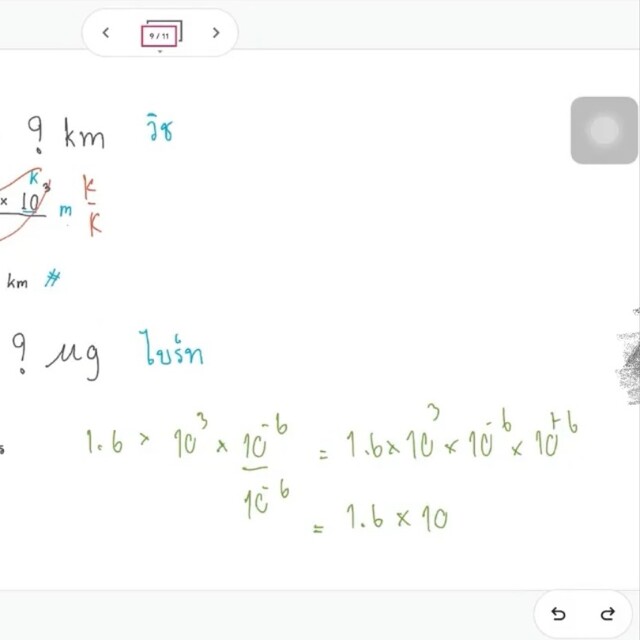 9 / 11
? km วิช
K
× 10³ m K/K
km #
? µg ไบร์ท
1.6 × 10³ × 10⁻⁶/10⁻⁶ = 1.6 × 10³ × 10⁻⁶ × 10⁺⁶
= 1.6 × 10